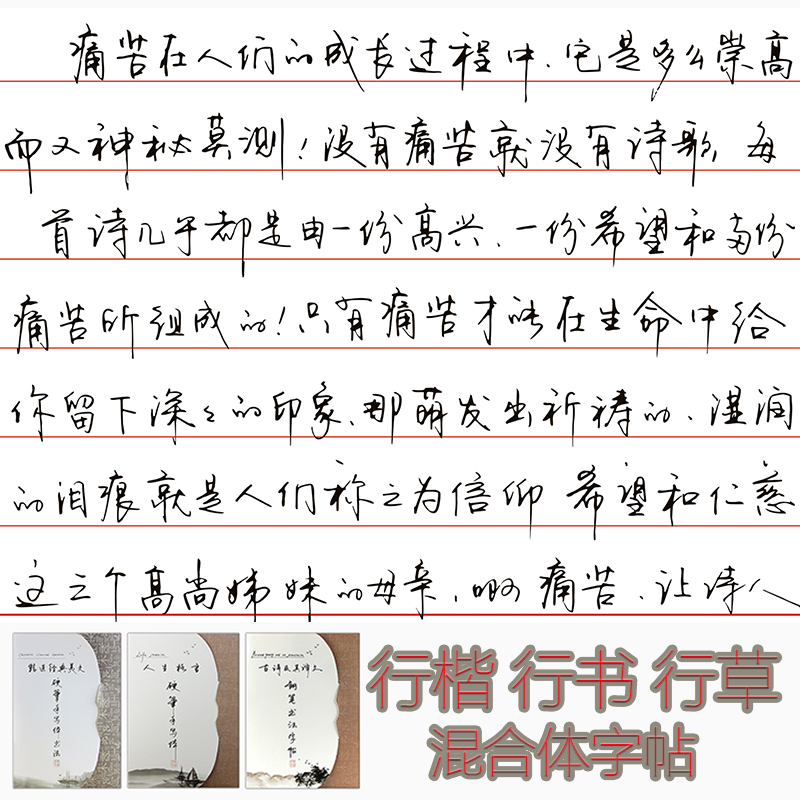 痛苦在人们的成长过程中、它是多么崇高
而又神秘莫测！没有痛苦就没有诗歌，每
首诗几乎都是由一份高兴、一份希望和两份
痛苦所组成的！只有痛苦才能在生命中给
你留下深深的印象、那萌发出祈祷的、湿润
的泪痕就是人们称之为信仰 希望和仁慈
这三个高尚姊妹的母亲，啊 痛苦、让诗人
甄选经典美文
硬笔手写体书法
人生格言
硬笔手写体
古诗文及译文
钢笔书法字帖
行楷 行书 行草
混合体字帖